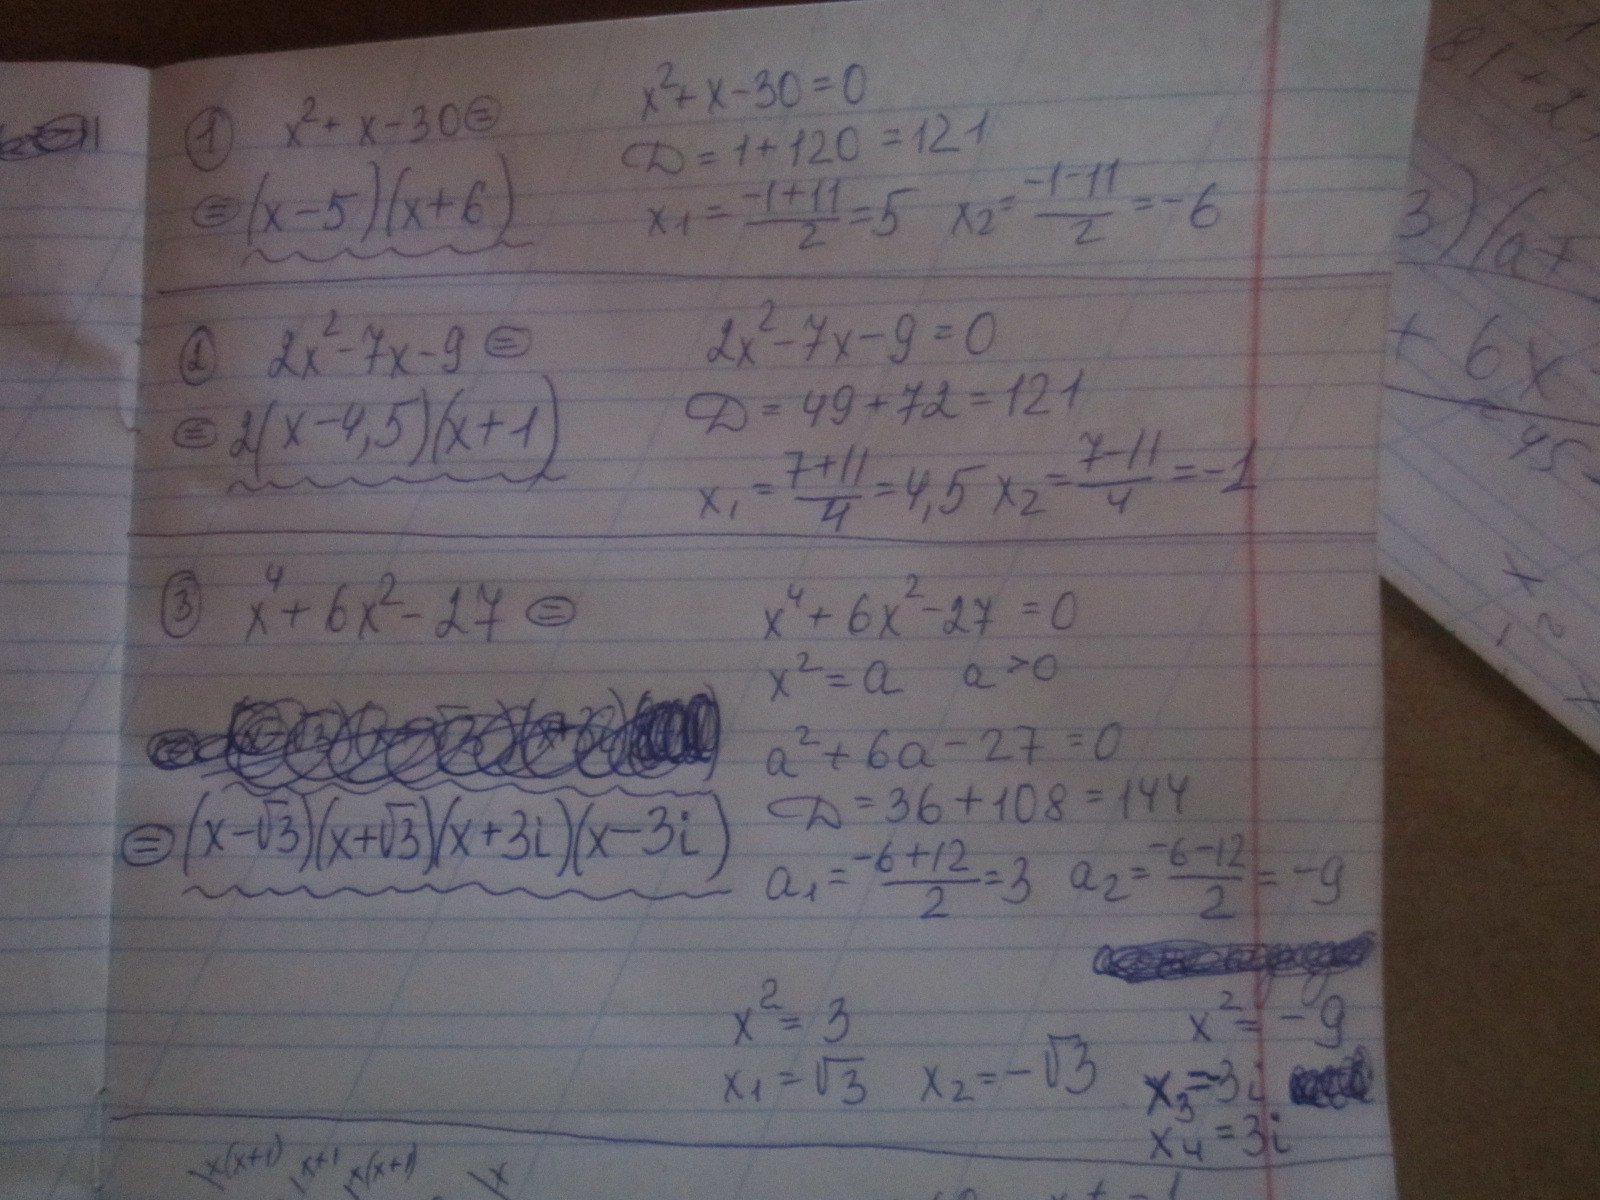 ① x² + x - 30 =
= (x - 5)(x + 6)
x² + x - 30 = 0
D = 1 + 120 = 121
x₁ = (-1+11)/2 = 5 x₂ = (-1-11)/2 = -6
② 2x² - 7x - 9 =
= 2(x - 4,5)(x + 1)
2x² - 7x - 9 = 0
D = 49 + 72 = 121
x₁ = (7+11)/4 = 4,5 x₂ = (7-11)/4 = -1
③ x⁴ + 6x² - 27 =
= (x - √3)(x + √3)(x + 3i)(x - 3i)
x⁴ + 6x² - 27 = 0
x² = a a > 0
a² + 6a - 27 = 0
D = 36 + 108 = 144
a₁ = (-6+12)/2 = 3 a₂ = (-6-12)/2 = -9
x² = 3 x² = -9
x₁ = √3 x₂ = -√3 x₃ = -3i
x₄ = 3i
x(x+1) x+1 x(x+1) x
81 + 2
3)(a +
+ 6x
= 45